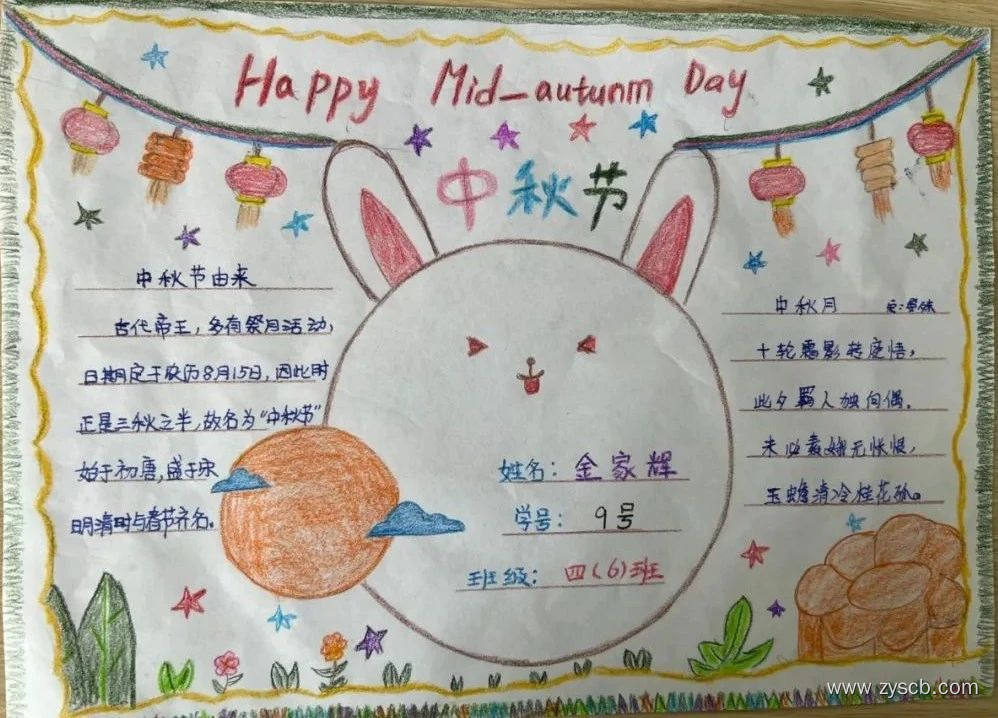 Happy Mid-autunm Day
中秋节
中秋节由来
古代帝王，多有祭月活动，
日期定于农历8月15日，因此时
正是三秋之半，故名为"中秋节"
始于初唐，盛于宋
明清时与春节齐名。
姓名：金家辉
学号：9号
班级：四(6)班
中秋月
十轮霜影转庭梧，
此夕羁人独向隅。
未必素娥无怅恨，
玉蟾清冷桂花孤。
www.zyscb.com